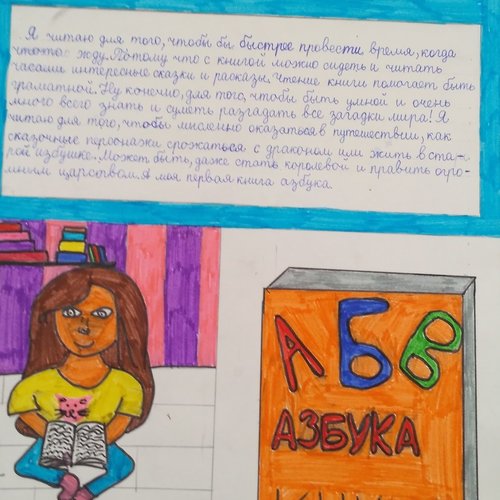 Я читаю для того, чтобы бы быстрее провести время, когда
что-то жду. Потому что с книгой можно сидеть и читать
часами интересные сказки и расказы. Чтение книги помогает быть
граматной. Ну конечно, для того, чтобы быть умной и очень
много всего знать и суметь разгадать все загадки мира! Я
читаю для того, чтобы мысленно оказаться в путешествии, как
сказочные персонажи срожаться с драконом или жить в ста-
рой избушке. Может быть, даже стать королевой и править огро-
мным царством. А моя первая книга азбука.
АБВ
АЗБУКА